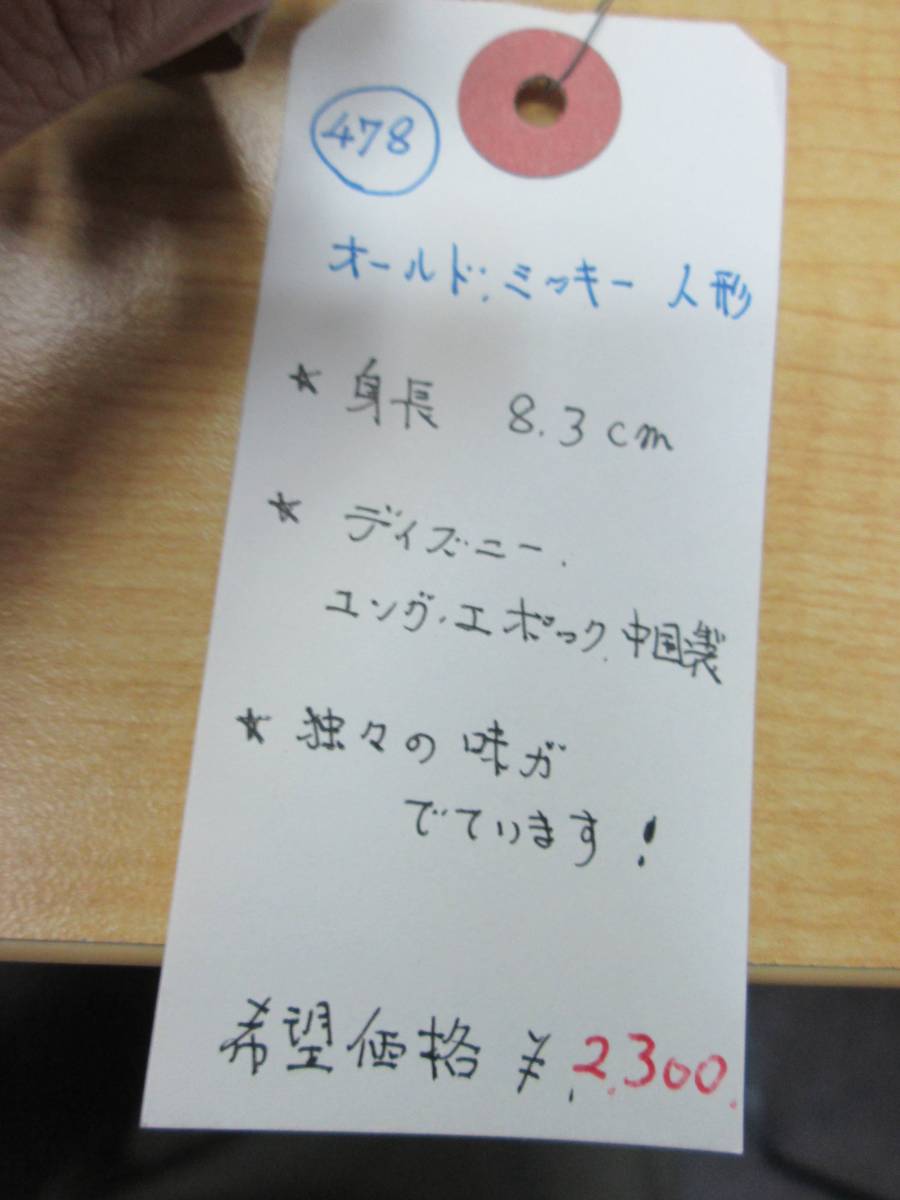 478
オールド・ミッキー 人形
★ 身長 8.3cm
★ ディズニー.
ユング・エポック.中国製
★ 独々の味が
でています!
希望価格 ¥2,300.